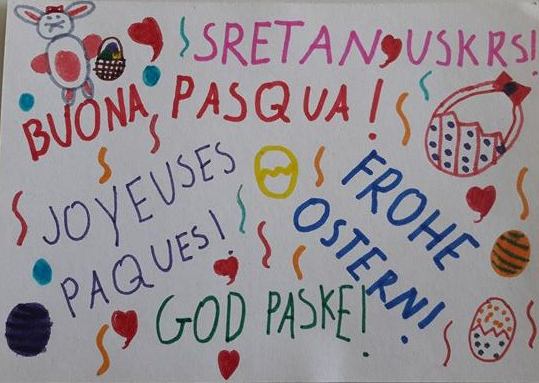 SRETAN USKRS!
BUONA PASQUA!
JOYEUSES
PAQUES!
FROHE
OSTERN!
GOD PASKE!